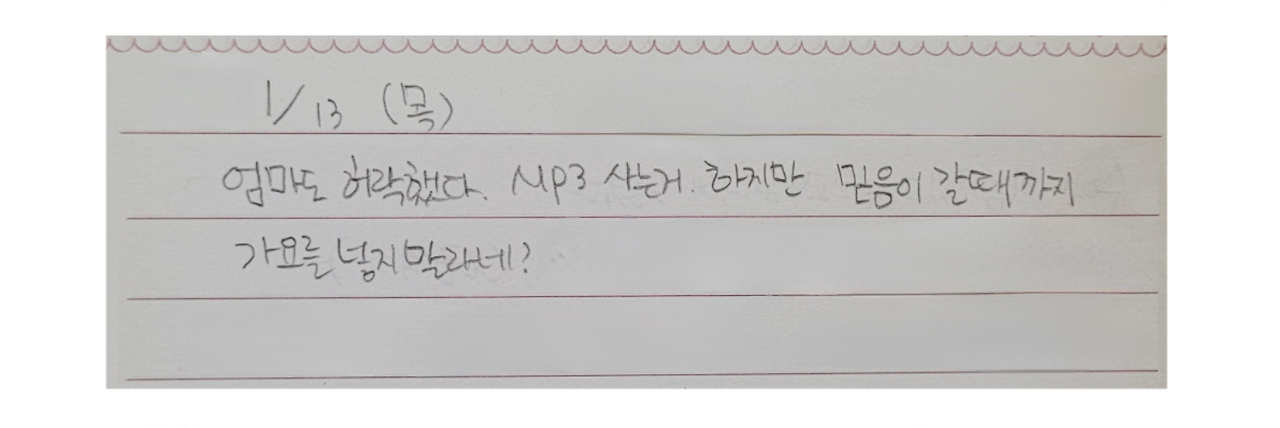 1/13 (목)
엄마도 허락했다. MP3 사는거. 하지만 믿음이 갈때까지
가요를 넣지말라네?